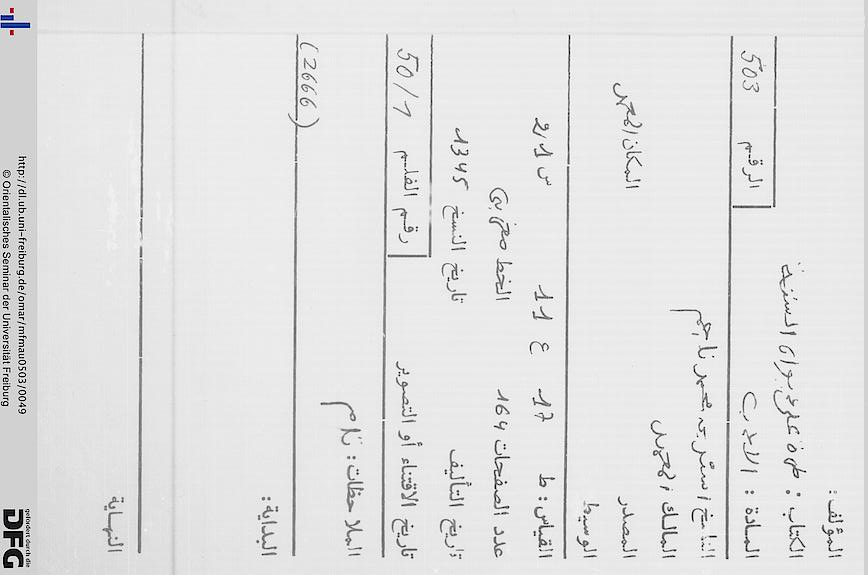 المؤلف:
الكتاب : طرة على ديوان
المادة : الادب الرقم 503
الناسخ محمد
المالك
المصدر المكان
الوسيط
القياس: ط 17 ع 11 س 21
عدد الصفحات 164 الخط مغربي
تاريخ التأليف تاريخ النسخ 1345
تاريخ الاقتناء أو التصوير رقم الفلم 50/1
الملاحظات: تام (2666)
البداية:
النهاية
http://dl.ub.uni-freiburg.de/omar/mfmau0503/0049
© Orientalisches Seminar der Universität Freiburg
gefördert durch die
DFG